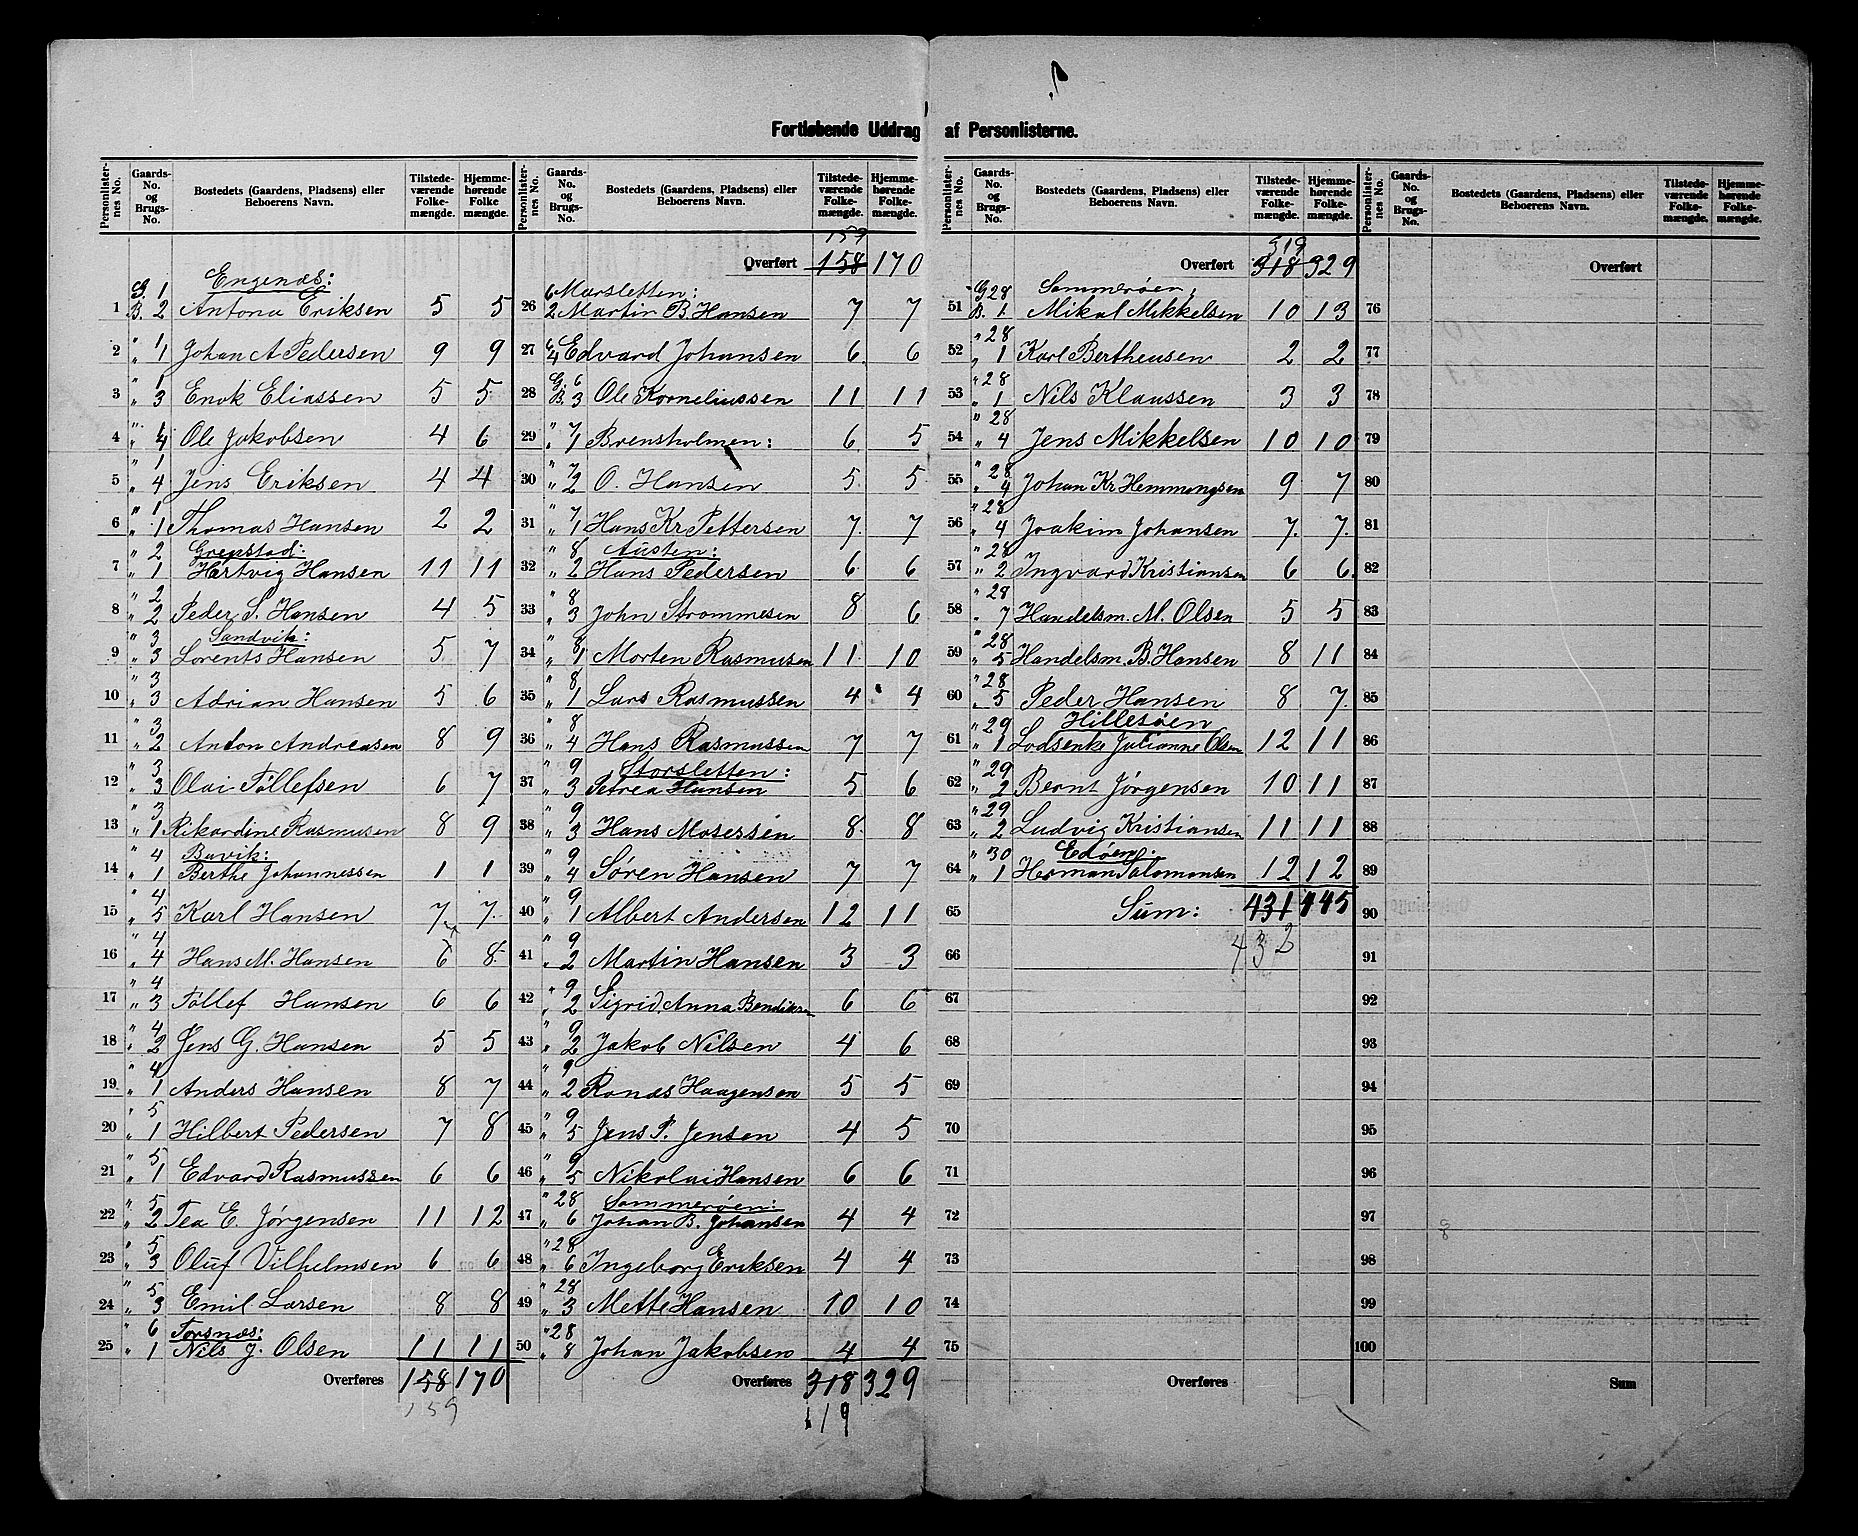 Fortløbende Uddrag af Personlisterne.
Personlister-nes No. Gaards-No. og Brugs-No. Bostedets (Gaardens, Pladsens) eller Beboerens Navn. Tilstede-værende Folke-mængde. Hjemme-hørende Folke mængde.
Engenæs:
1 G. 1 B. 2 Antona Eriksen 5 5
2 " 1 " 1 Johan A Pedersen 9 9
3 " 1 " 3 Enok Eliassen 5 5
4 " 1 " 4 Ole Jakobsen 4 6
5 " 1 " 4 Jens Eriksen 4 4
6 " 1 " 1 Thomas Hansen 2 2
Grepstad:
7 " 2 " 1 Hertvig Hansen 11 11
8 " 2 " 2 Peder S. Hansen 4 5
Sandvik:
9 " 3 " 3 Lorents Hansen 5 7
10 " 3 " 3 Adrian Hansen 5 6
11 " 3 " 2 Anton Andreasen 8 9
12 " 3 " 3 Olai Tøllefsen 6 7
13 " 3 " 1 Rikardine Rasmusen 8 9
Buvik:
14 " 4 " 1 Berthe Johannessen 1 1
15 " 4 " 5 Karl Hansen 7 7
16 " 4 " 4 Hans M. Hansen 8
17 " 4 " 3 Tøllef Hansen 6 6
18 " 4 " 2 Jens G. Hansen 5 5
19 " 4 " 1 Anders Hansen 8 7
20 " 5 " 1 Hilbert Pedersen 7 8
21 " 5 " 1 Edvard Rasmussen 6 6
22 " 5 " 2 Tea E. Jørgensen 11 12
23 " 5 " 3 Oluf Vilhelmsen 6 6
24 " 5 " 3 Emil Larsen 8 8
Torsnæs:
25 " 6 " 1 Nils J. Olsen 11 11
Overføres 158 170
159
Personlister-nes No. Gaards-No. og Brugs-No. Bostedets (Gaardens, Pladsens) eller Beboerens Navn. Tilstede-værende Folke-mængde. Hjemme-hørende Folke-mængde.
159
Overført 158 170
Marsletten:
26 6 2 Martin B. Hansen 7 7
27 6 4 Edvard Johansen 6 6
28 G. 6 B. 3 Ole Korneliussen 11 11
29 " 7 " 1 Brensholmen: 6 5
30 " 7 " 2 O. Hansen 5 5
31 " 7 " 1 Hans Kr Pettersen 7 7
Austen:
32 " 8 " 2 Hans Pedersen 6 6
33 " 8 " 3 John Strommesen 8 6
34 " 8 " 1 Morten Rasmusen 11 10
35 " 8 " 1 Lars Rasmussen 4 4
36 " 8 " 4 Hans Rasmussen 7 7
Storsletten:
37 " 9 " 3 Petrea Hansen 5 6
38 " 9 " 3 Hans Mosessen 8 8
39 " 9 " 4 Søren Hansen 7 7
40 " 9 " 1 Albert Andersen 12 11
41 " 9 " 2 Martin Hansen 3 3
42 " 9 " 2 Sigrid Anna Bendiksen 6 6
43 " 9 " 2 Jakob Nilsen 4 6
44 " 9 " 2 Ronæs Haagensen 5 5
45 " 9 " 5 Jens P. Jensen 4 5
46 " 9 " 5 Nikolai Hansen 6 6
Sommerøen:
47 " 28 " 6 Johan B. Johansen 4 4
48 " 28 " 6 Ingeborg Eriksen 4 4
49 " 28 " 3 Mette Hansen 10 10
50 " 28 " 8 Johan Jakobsen 4 4
Overføres 318 329
319
Personlister-nes No. Gaards-No. og Brugs-No. Bostedets (Gaardens, Pladsens) eller Beboerens Navn. Tilstede-værende Folke-mængde. Hjemme-hørende Folke-mængde.
319
Overført 318 329
Sommerøen,
51 G 28 B. 1 Mikal Mikkelsen 10 13
52 " 28 " 1 Karl Bertheusen 2 2
53 " 28 " 1 Nils Klaussen 3 3
54 " 28 " 4 Jens Mikkelsen 10 10
55 " 28 " 4 Johan Kr Hemmingsen 9 7
56 " 28 " 4 Joakim Johansen 7 7
57 " 28 " 2 Ingvard Kristiansen 6 6
58 " 28 " 7 Handelsm. M. Olsen 5 5
59 " 28 " 5 Handelsm. B. Hansen 8 11
60 " 28 " 5 Peder Hansen 8 7
Hillesøen
61 " 29 " 1 Lodsenke Julianne Olsen 12 11
62 " 29 " 2 Bernt Jørgensen 10 11
63 " 29 " 2 Ludvig Kristiansen 11 11
Edøen:
64 " 30 " 1 Herman Salomonsen 12 12
65 Sum: 431 445
66 432
67
68
69
70
71
72
73
74
75
Overføres
Personlister-nes No. Gaards-No. og Brugs-No. Bostedets (Gaardens, Pladsens) eller Beboerens Navn. Tilstede-værende Folke-mængde. Hjemme-hørende Folke-mængde.
Overført
76
77
78
79
80
81
82
83
84
85
86
87
88
89
90
91
92
93
94
95
96
97
98
99
100
Sum